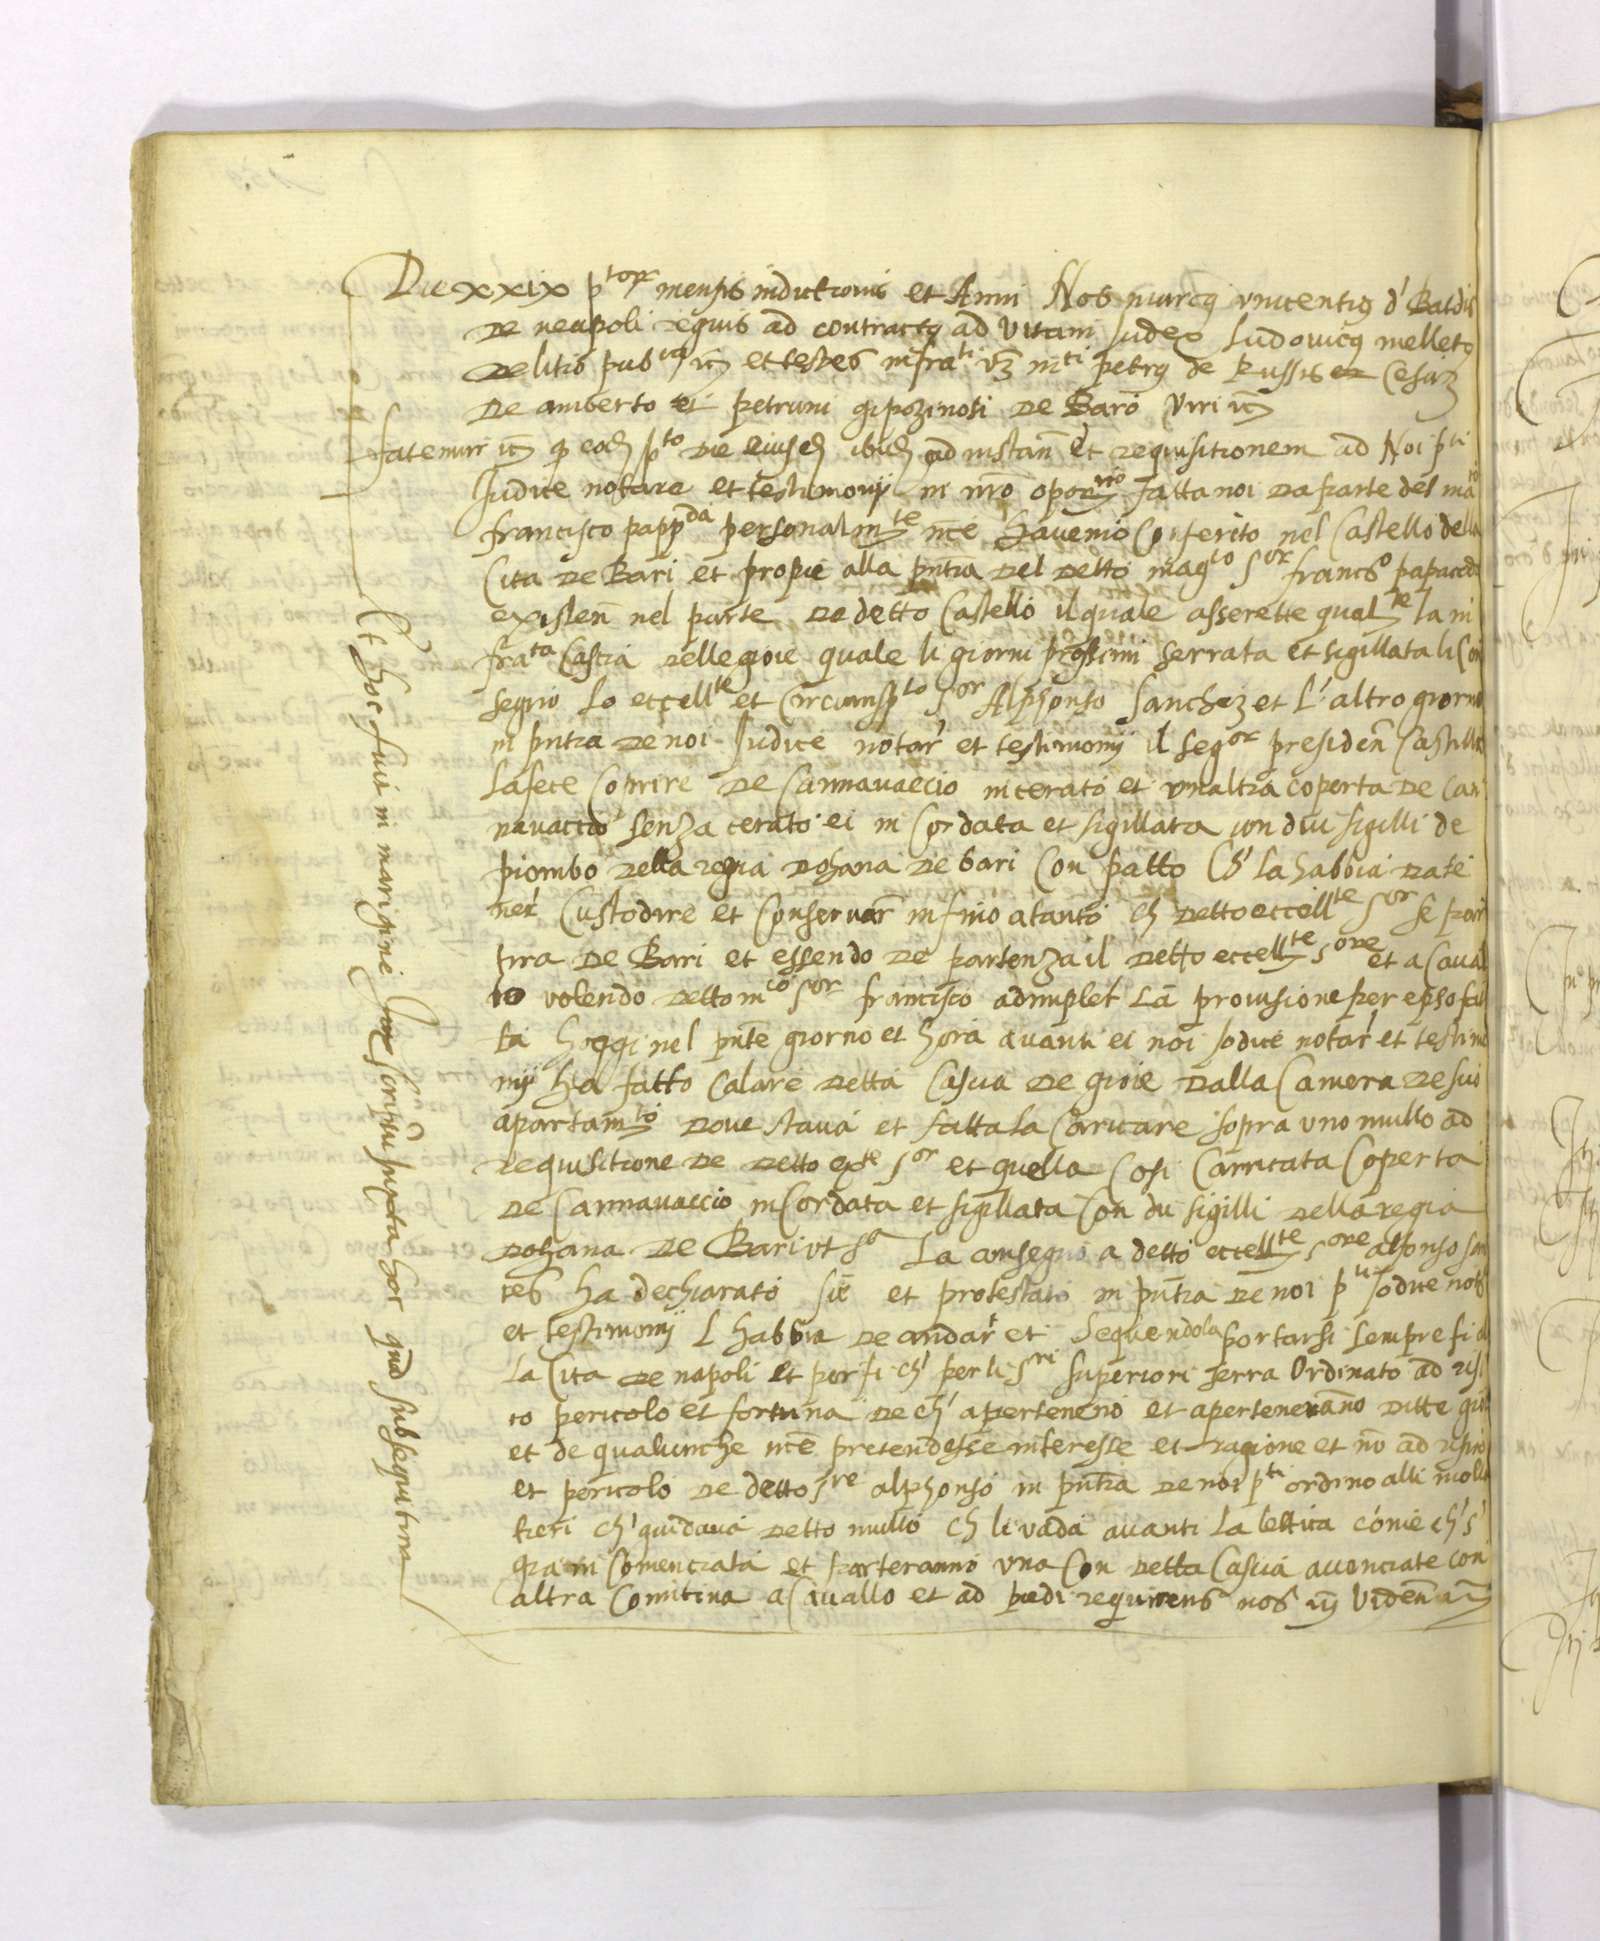 Die xxix p^tor mensis indictionis et Anni Nos marcq vincentiq d' Baldis
De neapoli regius ad contractq ad Vitam Judex Ludovicq melleto
De litis pub^cq et testes infra^ti vz m^ci petrq de Russis Cesar
De amberto et petrum De Baro Viri
fatemur q eod p^to Die eiusd ibid ad instan et requisitionem ad Noi p^ti
Judice notare et testimonij in nro fatta noi Da parte del ma^co
francisco papp^da personalm^te nce havemo Conferito nel Castello della
Cita De Bari et propie alla pntia Del Detto mag^co S^or franc^so papacoda
existen nel parte De detto Castello il quale asserette qual^te la in
fra^ta Cascia Delle gioie quale li giorni prossimi serrata et sigillata li Con
segno lo eccell^te et Circumsp^to S^or Alphonso Sanchez et L'altro giorno
in pntia De noi Judice notar et testimonij il seg^or presiden Castillo
La fece Coprire De Cannavaccio incerato et unaltra coperta De Can
navaccio senza cerato ei in Cordata et sigillata con dui sigilli de
piombo Della regia Dohana De bari Con patto Ch' la habbia Da te
ner Custodire et Conservar infino atanto ch Detto eccell^te S^or se par
tira De Bari et essendo De partenza il Detto eccell^te S^ore et a Caval
lo volendo Detto m^co S^or francisco adimplet La provisione per epso fat
ta hoggi nel pnte giorno et hora avanti ei noi Jodice notar et testimo
nij ha fatto Calare Detta Cascia De gioie Dalla Camera De suo
apartam^to Dove stava et fatta la Caricare sopra uno mullo ad
requisitione De Detto ex^te S^or et quella Cosi Carricata Coperta
De Cannavaccio in Cordata et sigillata Con dui sigilli Della regia
Dohana De Bari ut s^a La consegno a detto eccell^te S^ore alfonso San
ces ha dechiarato et protestato in pntia De noi p^ti Jodice not
et testimonij L habbia De andar et Sequendola portarsi sempre fi al
La Cita De napoli et per fi ch' per li S^ri superiori serra Ordinato ad risi
co pericolo et fortuna De ch' aperteneno et aperteneranno Ditte gioie
et de qualunche nce pretendesse interesse et ragione et no ad risico
et pericolo De detto S^re alphonso in pntia De noi p^ti ordino alli molat
tieri ch' guidava Detto mullo ch li vada avanti La lettica come ch' s'
gia in Comenciata et parteranno una Con Detta Cascia avanciate con
altra Comitiva a Cavallo et ad piedi requirens nos Viden
Et hoc fuit in margine scriptu iuxta hoc qnd subsequitur